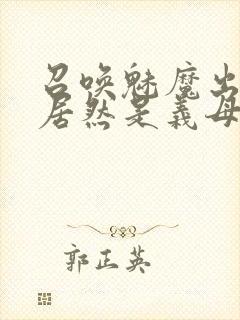 召唤魅魔出
居然是义母
郭正英